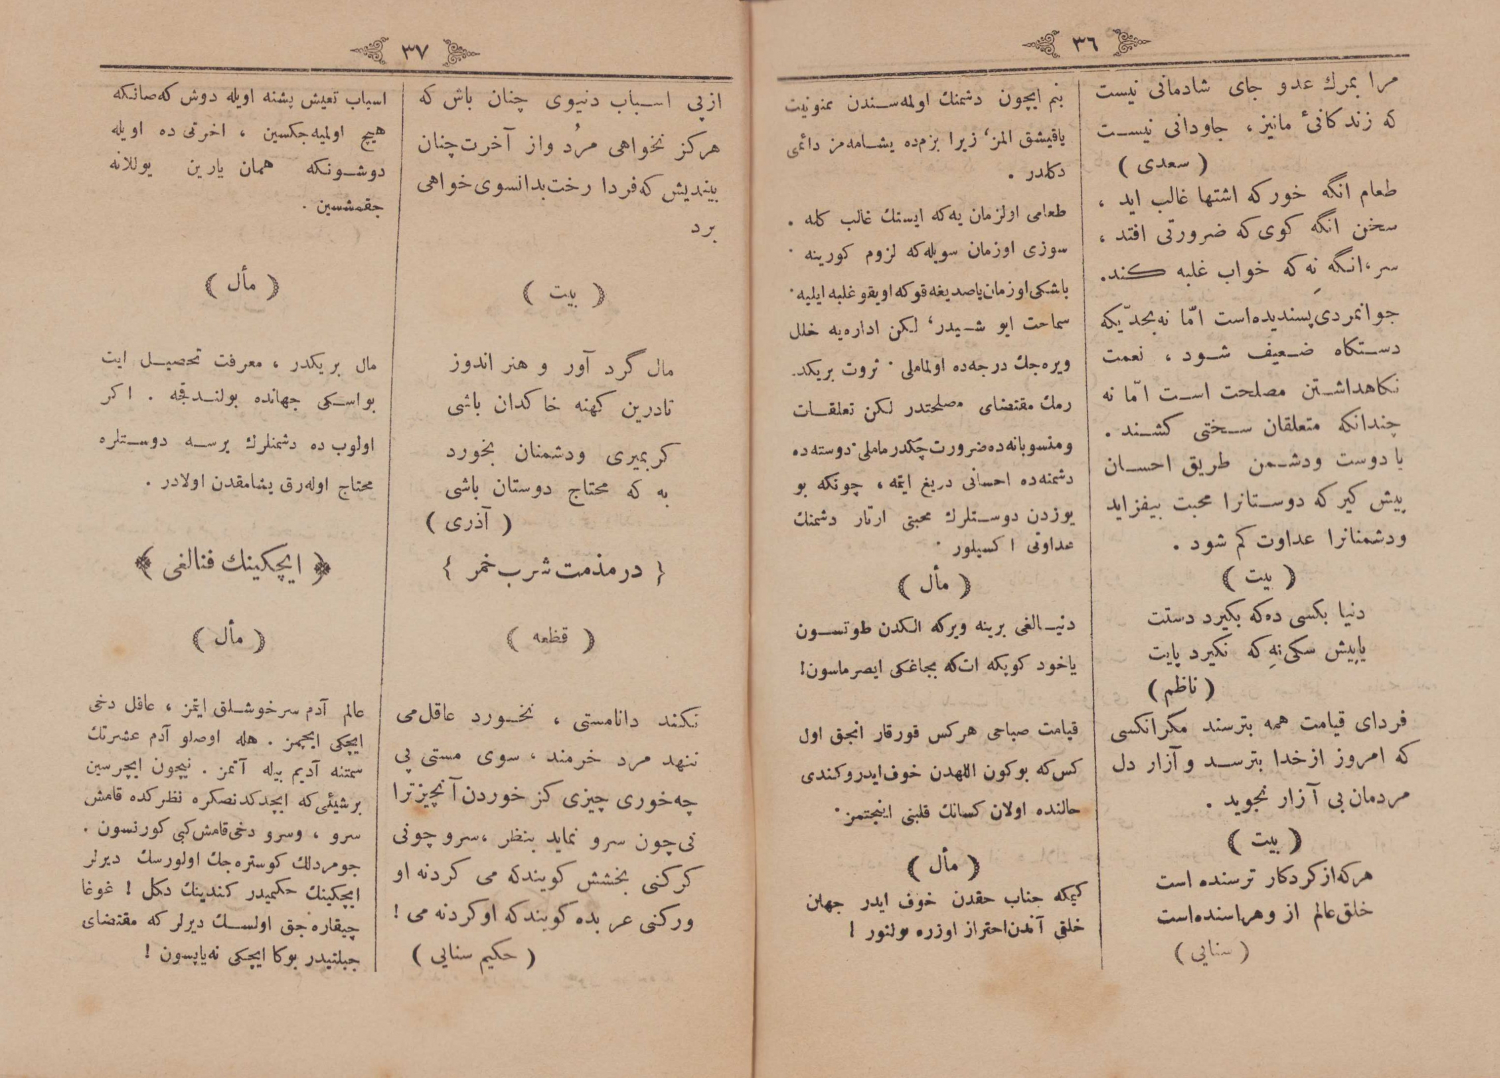 ٣٦
مرا بمرك عدو جای شادمانی نیست
که زندكانیٔ مانیز ، جاودانی نیست
( سعدی )
طعام انگه خورکه اشتها غالب اید ،
سخن انگه کوی که ضرورتی افتد ،
سر،انگه نِه که خواب غلبه کند.
جوانمردی پسندیده است امّا نه بحدّیکه
دستکاه ضعیف شود ، نعمت
نکاهداشتن مصلحت است امّا نه
چندانکه متعلقان سختی کشند .
با دوست ودشمن طریق احسان
پیش کیر که دوستانرا محبت بیفزاید
ودشمنانرا عداوت کم شود .
( بیت )
دنیا بکسی ده که بکیرد دستت
یاپیش سکی نِه که نکیرد پایت
( ناظم )
فردای قیامت همه بترسند مکرانکسی
که امروز ازخدا بترسد و آزار دل
مردمان بی آزار نجوید .
( بیت )
هرکه از کردکار ترسنده است
خلق عالم از و هراسنده است
( سنایی )
بنم ایچون دشمنك اولمه سندن ممنونیت
یاقیشق المز، زیرا بزم ده یشامه مز دائمی
دکلدر .
طعامی اولزمان یه که ایستك غالب کله .
سوزی اوزمان سویله که لزوم کورینه .
باشکی اوزمان یاصدیغه قوکه اویقو غلبه ایلیه .
سماحت ایو شیدر، لیکن اداره یه خلل
ویره جك درجه ده اولماملی . ثروت بریکد
رمك مقتضای مصلحتدر لکن تعلقات
ومنسوبانه ده ضرورت چکدرماملی . دوسته ده
دشمنه ده احسانی دریغ ایتمه ، چونکه بو
یوزدن دوستلرك محبتی ارتار دشمنك
عداوتی اکسیلور .
( مأل )
دنیالغی برینه ویرکه الکدن طوتسون
یاخود کوپکه ات که بجاغکی ایصرماسون!
قیامت صباحی هرکس قورقار انجق اول
کس که بوکون اللهدن خوف ایدر وکندی
حالنده اولان کسانك قلبنی اینجتمز .
( مأل )
کیمکه جناب حقدن خوف ایدر جهان
خلقی آندن احتراز اوزره بولنور !
٣٧
ازپی اسباب دنیوی چنان باش که
هرکز نخواهی مرُد واز آخرت چنان
بیندیش که فردا رخت بدانسوی خواهی
برد
( بیت )
مال گرد آور و هنر اندوز
تادرین کهنه خاکدان باشی
کر بمیری ودشمنان بخورد
به که محتاج دوستان باشی
( آذری )
{ در مذمت شرب خمر }
( قطعه )
نکند دانامستی ، نخورد عاقل می
ننهد مرد خرمند ، سوی مستی پی
چه خوری چیزی کز خوردن آنچیزترا
نی چون سرو نماید بنظر ،سرو چونی
کرکنی بخشش کویندکه می کردنه او
ورکنی عربده کویندکه اوکردنه می !
( حکیم سنایی )
اسباب تعیش پشنه اویله دوش که صانکه
هیچ اولمیه جکسین ، اخرتی ده اویله
دوشونکه همان یارین یوللانه
جقمشسین .
( مأل )
مال بریکدر ، معرفت تحصیل ایت
بواسکی جهانده بولندقجه . اکر
اولوب ده دشمنلرك یرسه دوستلره
محتاج اوله رق یشامقدن اولادر .
﴿ ایچکینك فنالغی ﴾
( مأل )
عالم آدم سرخوشلق ایتمز ، عاقل دخی
ایچکی ایچمز . هله اوصلو آدم عشرتك
سمتنه آدیم بیله آتمز . نیچون ایچرسین
برشیئی که ایچدکدنصکره نظرکده قامش
سرو ، وسرو دخی قامش کبی کورنسون .
جومردلك کوستره جك اولورسك دیرلر
ایچکینك حکمیدر کندینك دکل ! غوغا
چیقاره جق اولسك دیرلر که مقتضای
جبلتیدر بوکا ایچکی نه یاپسون !